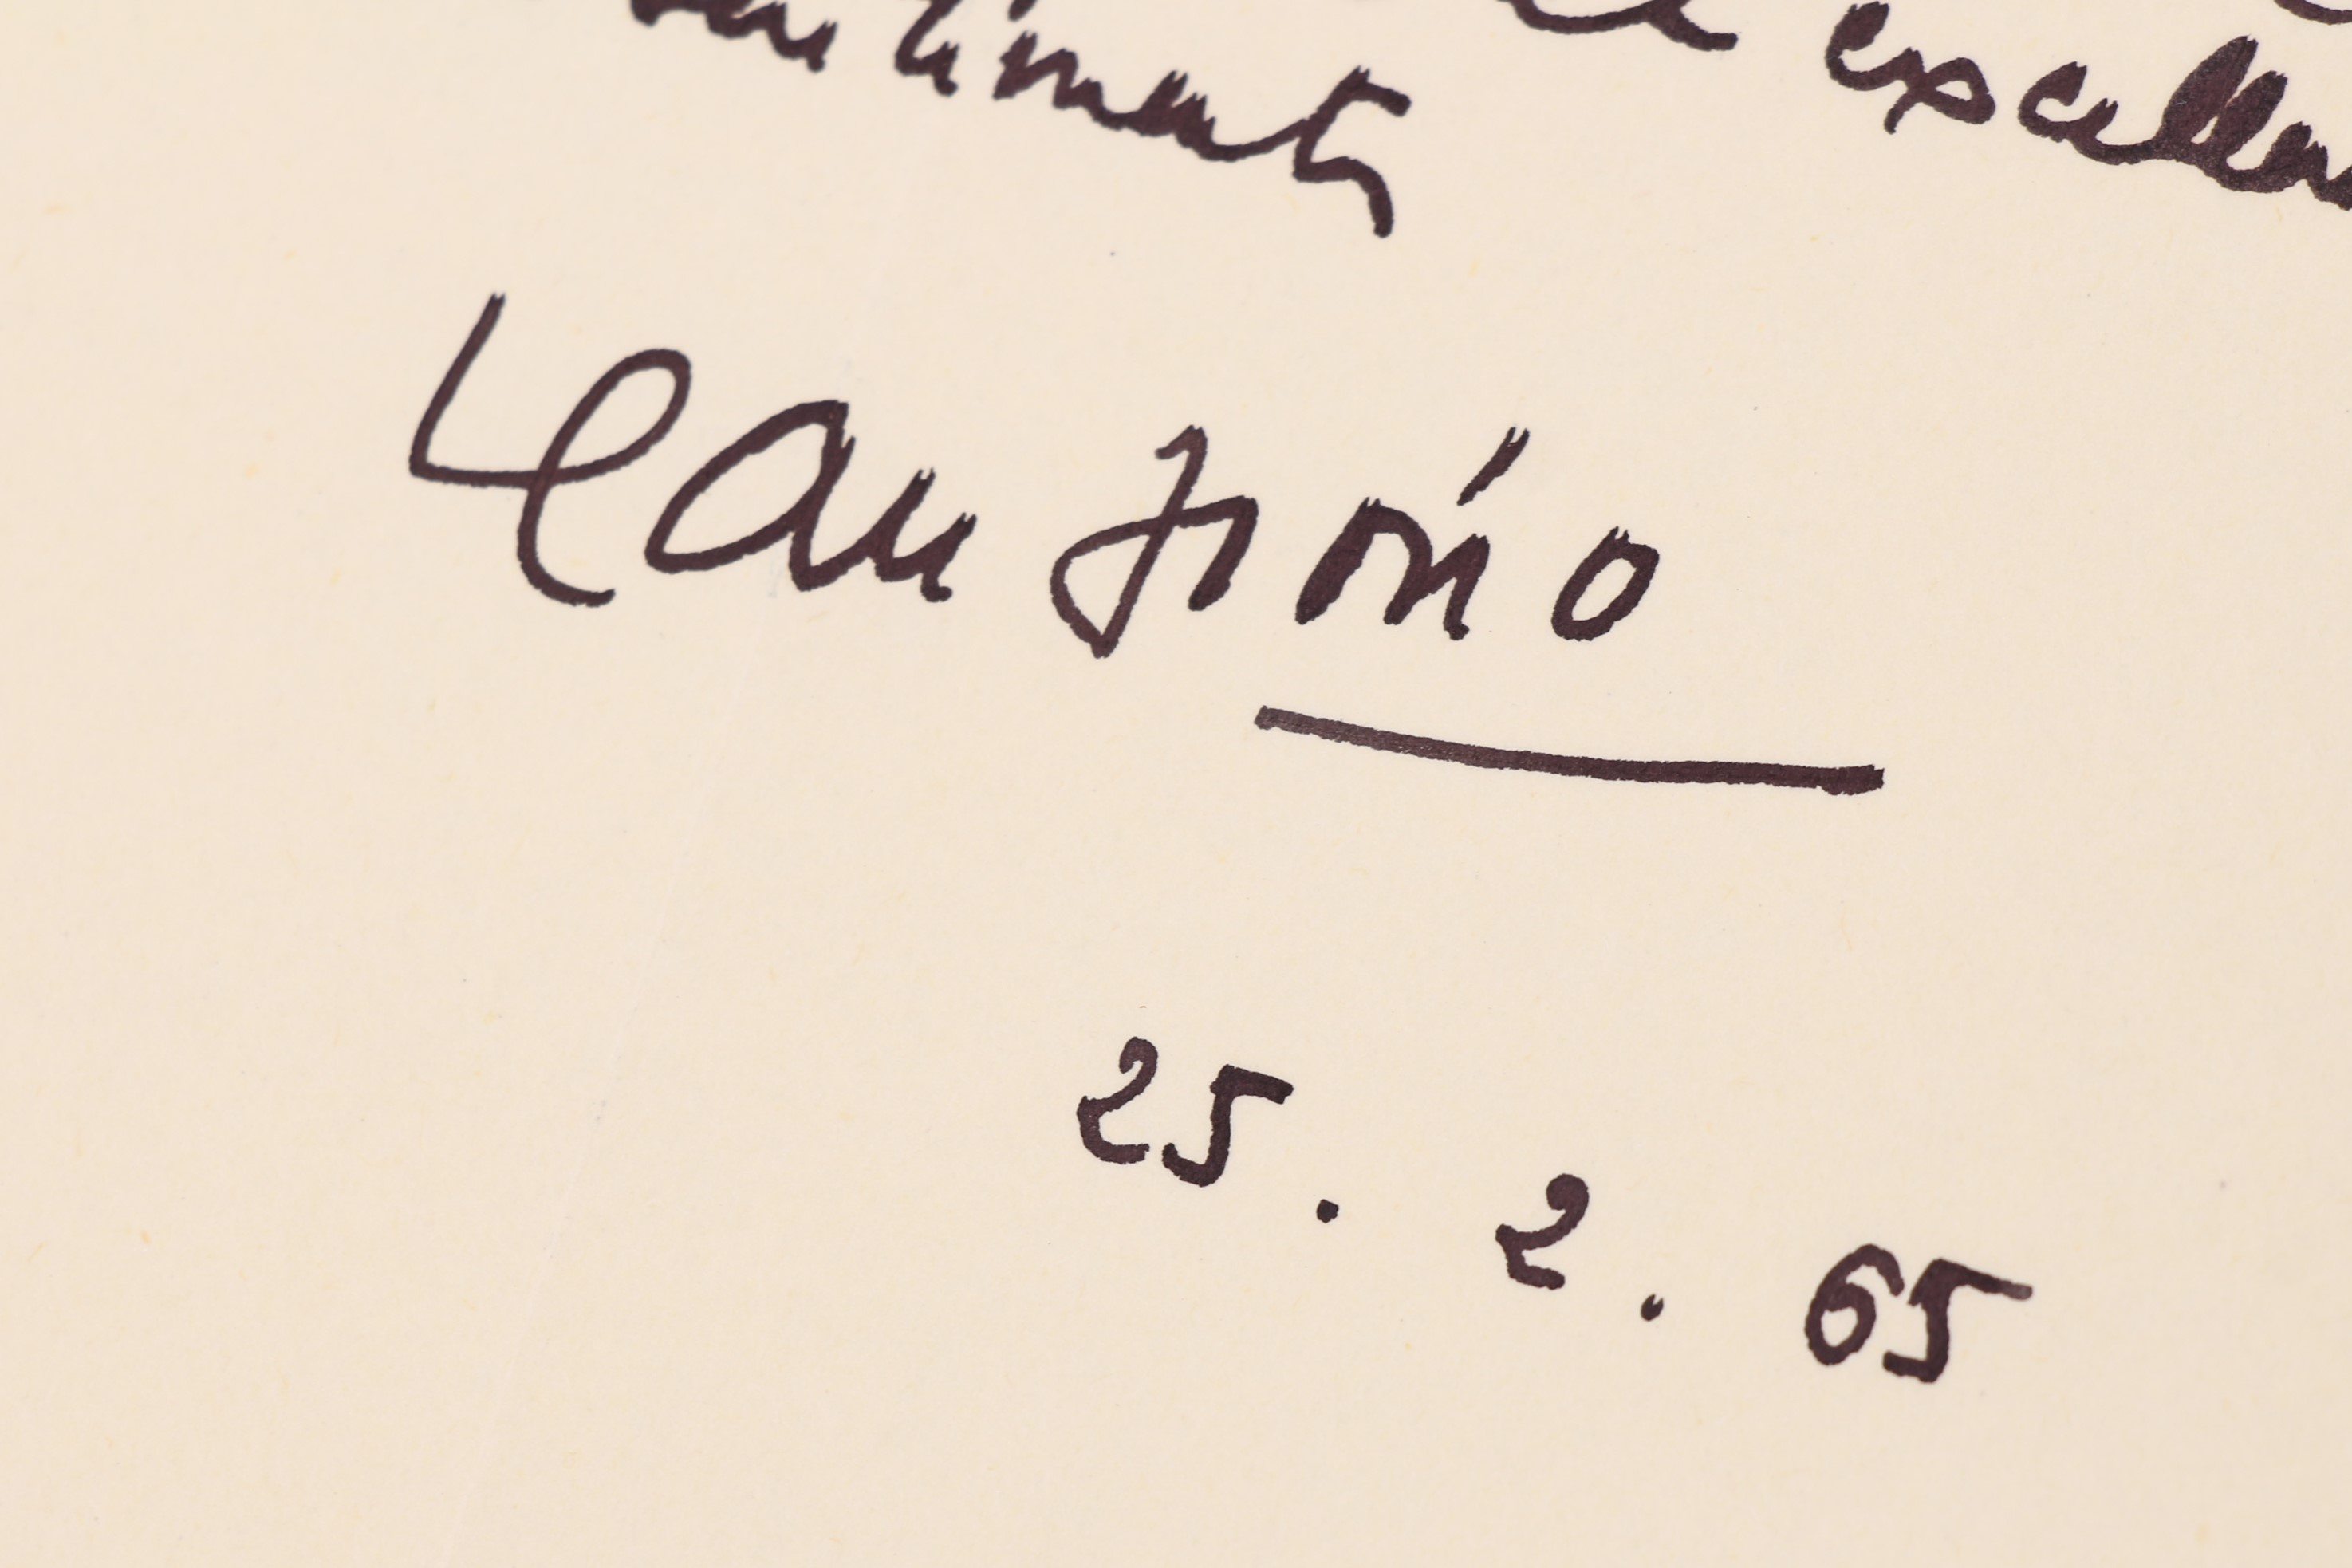 excellents
sentiments
Jean Giono
25. 2. 65